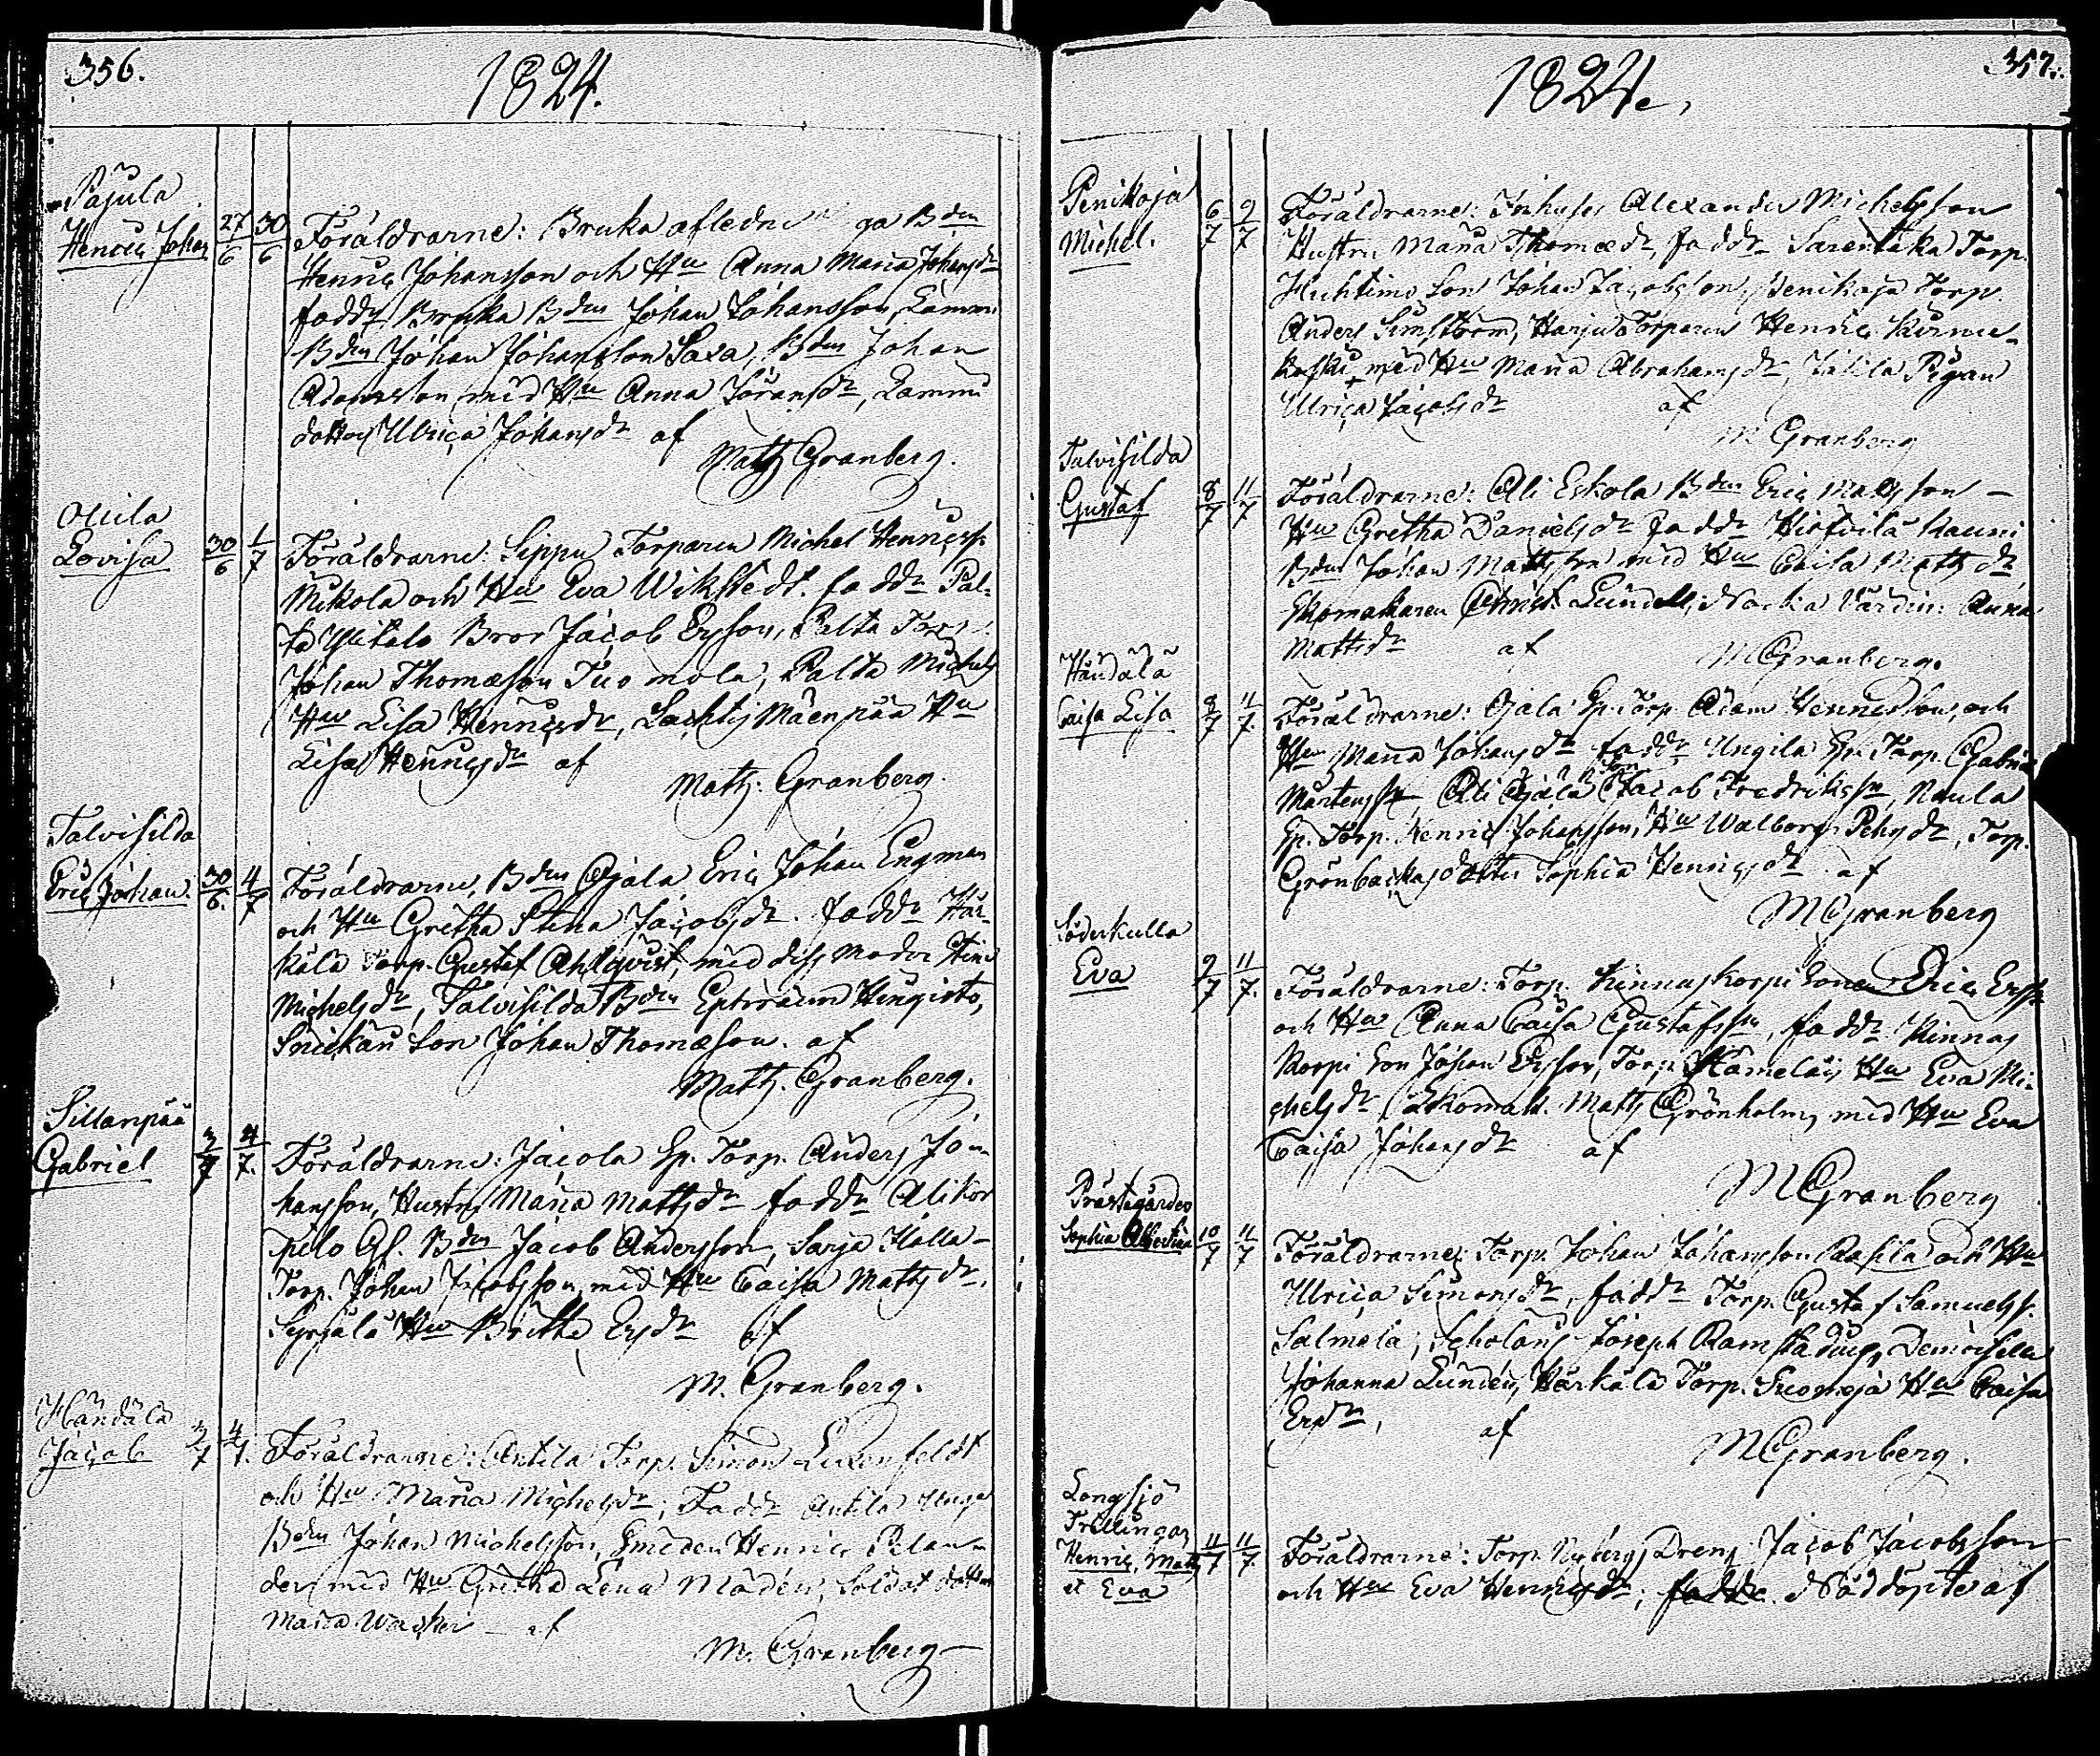 356.
1824.
Pajula
Henric Johan 27/6 30/6 Föräldrarne: Bruka afledne ga Bden
Henric Johansson och Hu Anna Maria Johansdr
faddr Bruka Bden Johan Johansson, Lammi
Bden Johan Johansson Saxa, Bden Johan
Adamsson med Hu Anna Göransdr, Lammi
dotter Ulrica Johansdr af
Matts Granberg.
Ollila
Lovisa 30/6 1/7 Föräldrarne: Sippu Torparen Michel Henricss.
Mikola och Hu Eva Wikstedt. faddr Pal-
ta Ylitalo Bror Jacob Ersson, Palta Torp.
Johan Thomæson Tuomola, Palta Michels
Hu Lisa Henricsdr, Lachtis Mäenpää Hu
Lisa Henricsdr af
Matts. Granberg.
Talvisilda
Eric Johan. 30/6. 4/7 Föräldrarne, Bden Ojala Eric Johan Engman
och Hu Gretha Stina Jacobsdr. faddr Här-
kälä Torp. Gustaf Ahlqvist, med dess moder Stina
Michelsdr, Talvisilda Bden Ephraim Hingisto,
Snickari Son Johan Thomæson. af
Matts. Granberg.
Sillanpää
Gabriel 3/7 4/7. Föräldrarne: Jacola Sp. Torp. Anders Jo-
hansson, Hustru Maria Mattsdr faddr Alikor
pilo Af. Bden Jacob Andersson, Sarja Halla-
Torp. Johan Jacobsson, med Hu Caisa Mattsdr.
Syrjälä Hu Britha Ersdr af
M. Granberg.
Händälä
Jacob 3/7 4/7. Föräldrarne: Antila Torp. Simon Luxenfeldt
och Hu Maria Michelsdr; Faddr Antila Unga
Bden Johan Michelsson, Smeden Henric Pelan-
der med Hu Gretha Lena Modén, Soldat dotter
Maria Wacker af
M. Granberg
357.
1824.
Penikoja
Michel. 6/7 9/7 Föräldrarne: Inhyses Alexander Michelsson
Hustru Maria Thomædr, faddr Sarentaka Torp.
Huhtimo Son Johan Jacobsson, Penikoja Torp.
Anders Simström, Harju Torparen Henric Kirmu-
koski med Hu Maria Abrahamsdr, Jälila Pigan
Ulrica Jacobsdr af
M Granberg
Talvisilda
Gustaf 8/7 11/7 Föräldrarne: Ali Eskola Bden Eric Matsson
Hu Gretha Danielsdr faddr Hietoila Kauni
Bden Johan Mattsson med Hu Caisa Mattsdr
Skomakaren Christ. Lundell, Nocka Värdin: Anna
Mattsdr af
MGranberg.
Händälä
Caisa Lisa 8/7 11/7. Föräldrarne: Ojala Sp. Torp. Adam Henricsson, och
Hu Maria Johansdr faddr Ungila Sp. Torp. Gabriel
Mårtenssn, Ali Ojala Son Jacob Fredrikssn, Naula
Sp. Torp. Henric Johansson, Hu Walborg Pehrsdr, Torp.
Grönbackas dotter Sophia Henricsdr af
MGranberg
Söderkulla
Eva 9/7 11/7. Föräldrarne: Torp. Kinnaskorpi Sonen Eric Erss.
och Hu Anna Caisa Gustafssn, faddr Kinnas
Korpi Son Johan Ersson, Torp. Hämeläis Hu Eva Mi-
chelsdr, Skomak. Matts Grönholm, med Hu Eva
Caisa Johansdr af
MGranberg
Prästegården
Sophia Albertina 10/7 11/7 Föräldrarne: Torp. Johan Johansson Rasila och Hu
Ulrica Simonsdr, faddr Torp. Gustaf Samuelss.
Salmela, Scholaris Joseph Ramstadius, Demoiselle
Johanna Lundén, Härkälä Torp. Suonoja Hu Caisa
Ersdr, af
MGranberg.
Longsjö
Trillingar
Henric, Matts 11/7 11/7. Föräldrarne: Torp. Nybergs Dreng Jacob Jacobsson
et Eva och Hu Eva Henricsdr; faddr. Nöddöpte af